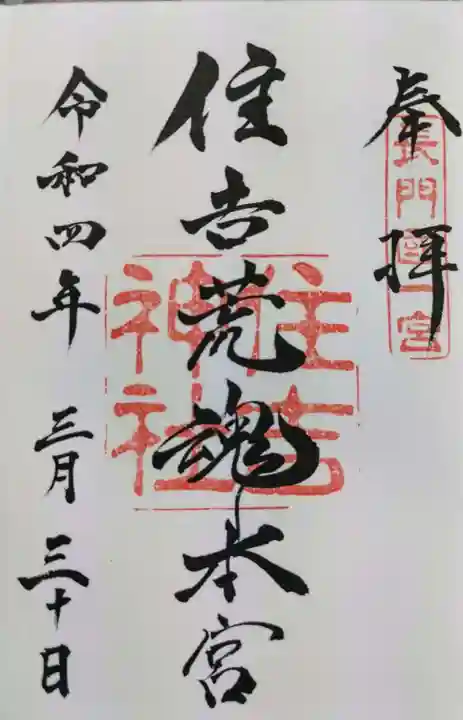 奉拝
長門國一宮
住吉荒魂本宮
住吉神社
令和四年 三月 三十日